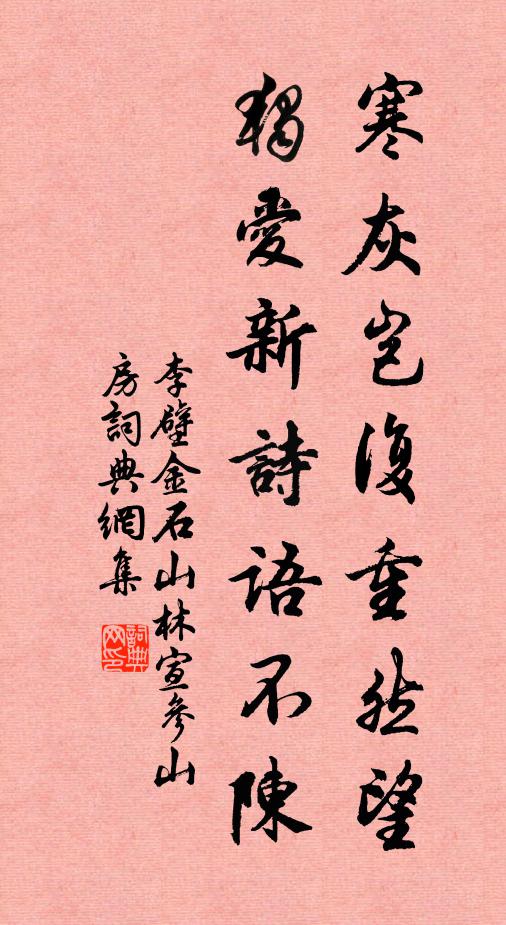 寒灰岂復重然望
獨愛新詩語不陳
李壁金石山林宣參山
房詞典網集
詞典網印